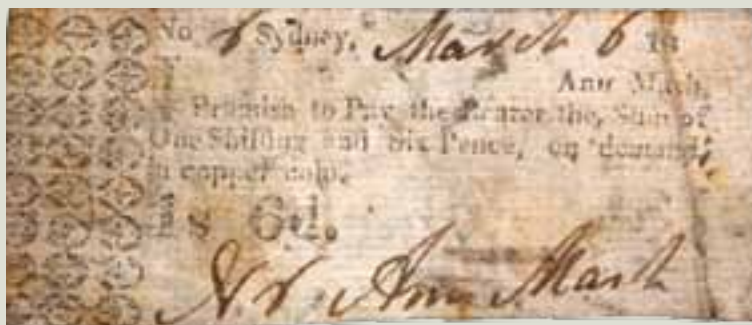 No 8 Sydney, March 6 18
Ann Mash,
Promise to Pay the Bearer the, Sum of
One Shilling and Six Pence, on demand,
in copper coin.
s 6d.
Ann Mash